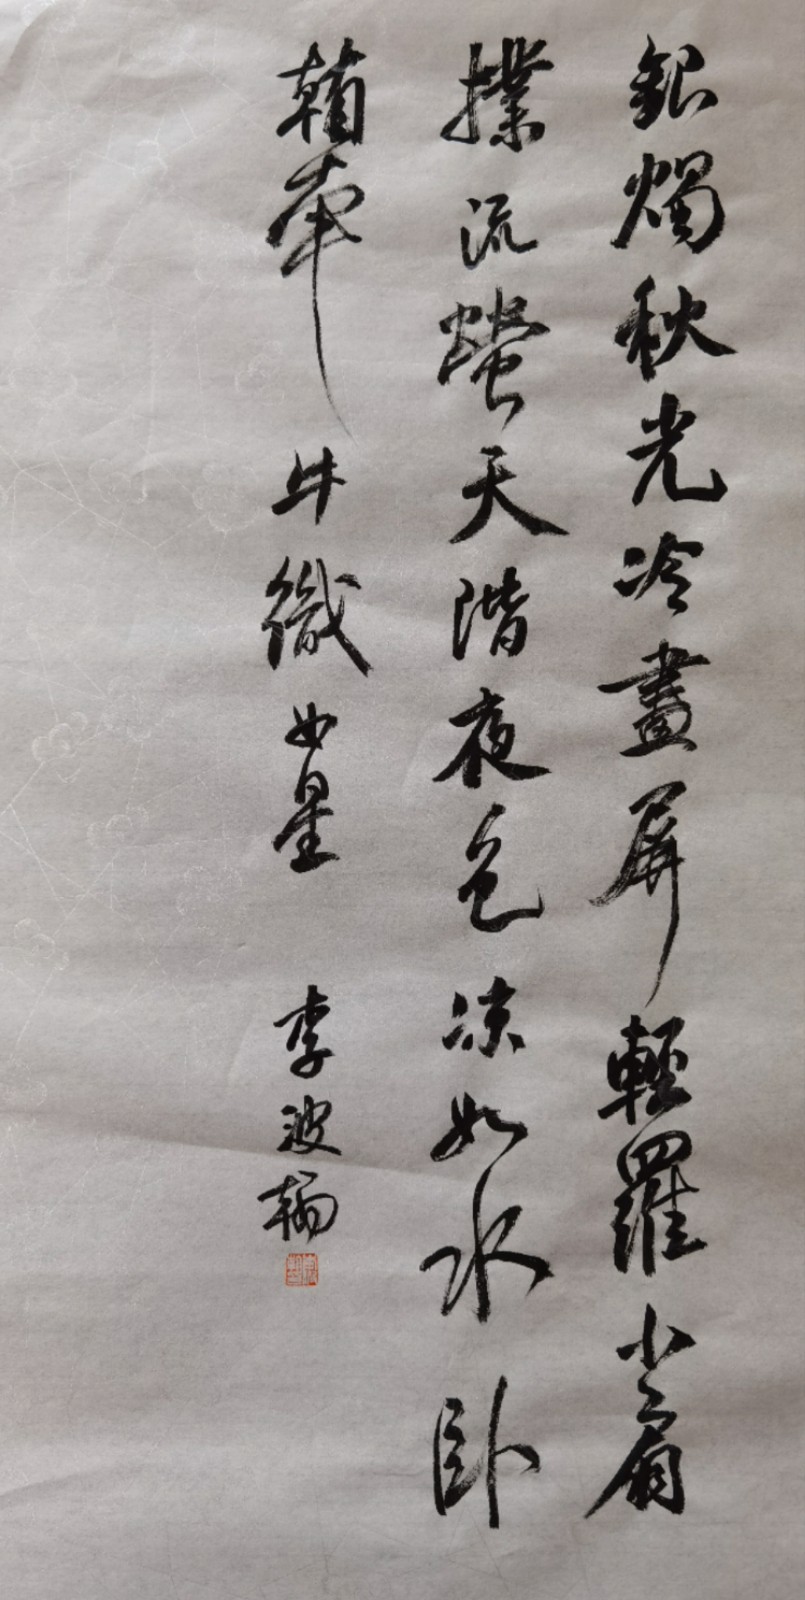 銀燭秋光冷畫屏輕羅小扇
撲流螢天階夜色涼如水臥
看牽牛織女星 李波翰